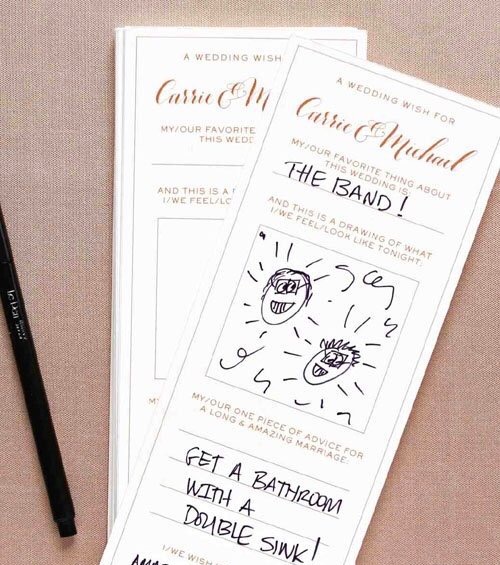 A WEDDING WISH
Carrie & M
MY/OUR FAVORITE
THIS WEDD
AND THIS IS A
I/WE FEEL/LO
MY
A WEDDING WISH FOR
Carrie & Michael
MY/OUR FAVORITE THING ABOUT
THIS WEDDING IS:
THE BAND!
AND THIS IS A DRAWING OF WHAT
I/WE FEEL/LOOK LIKE TONIGHT:
MY/OUR ONE PIECE OF ADVICE FOR
A LONG & AMAZING MARRIAGE:
GET A BATHROOM
WITH A
DOUBLE SINK!
I/WE WISH
Le Pen